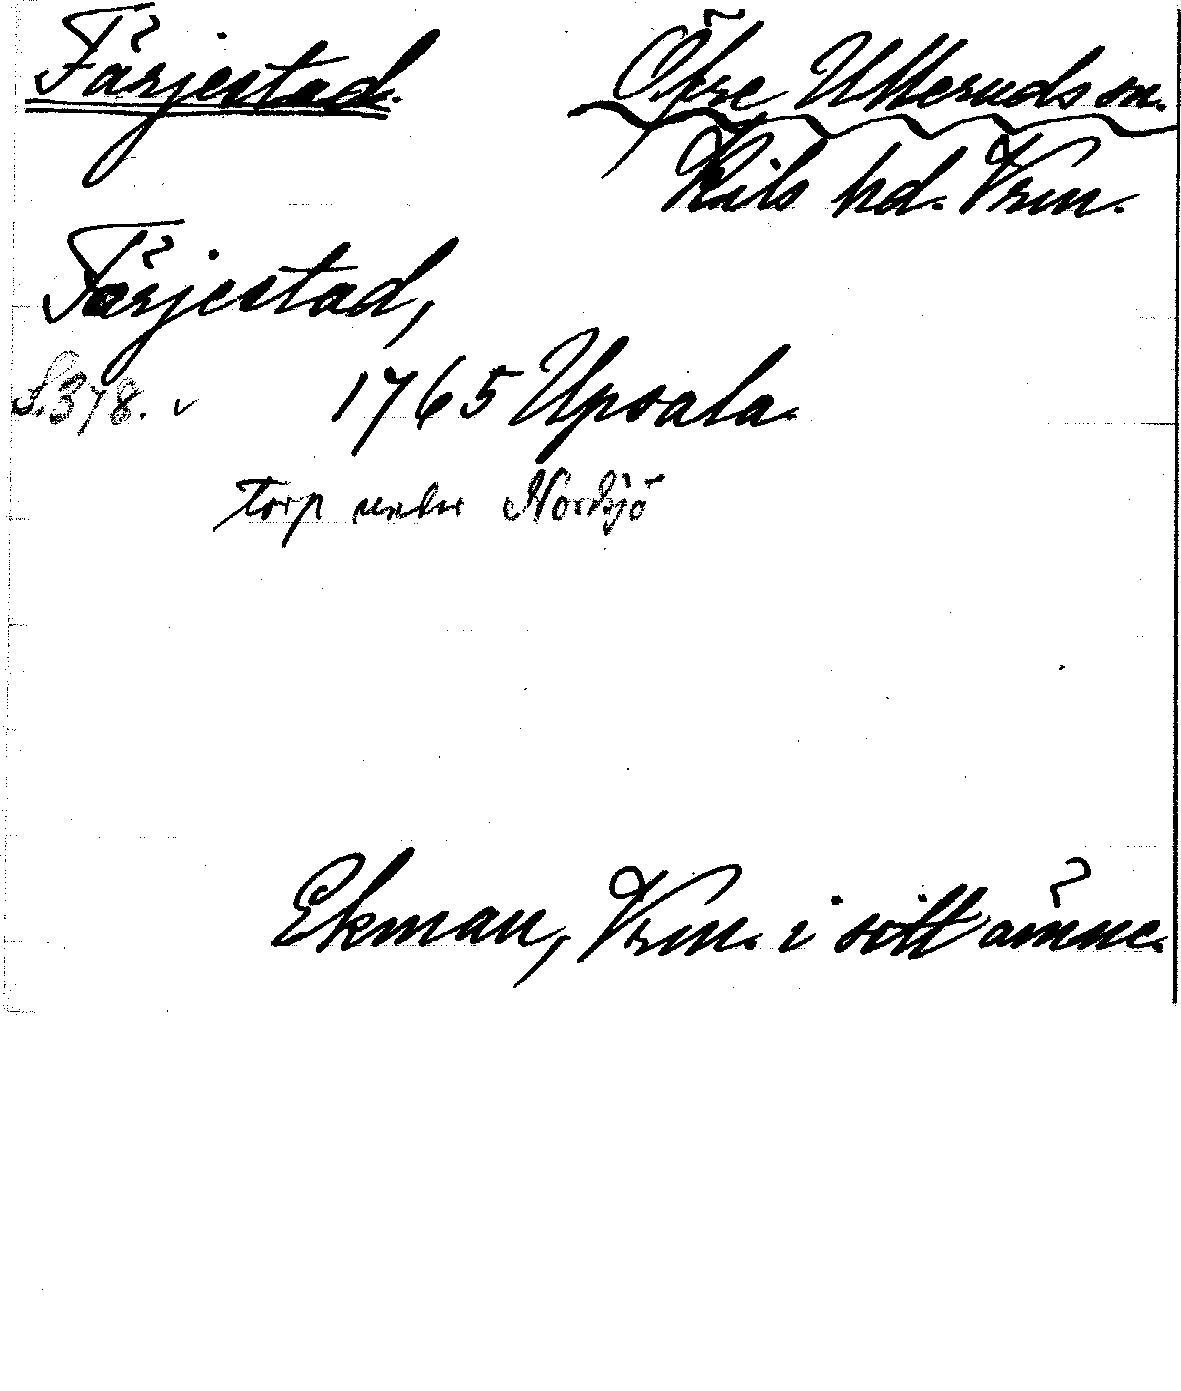 Färjestad. Öfre Ulleruds sn.
Kils hd. Vrm.
Färjestad,
S. 378. v 1765 Upsala.
torp under Nordsjö
Ekman, Vrm. i sitt ämne.